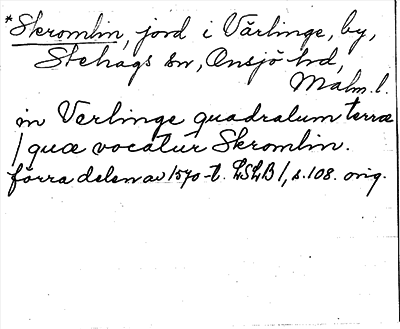 *Skromlin, jord i Värlinge, by,
Stehags sn, Onsjö hd,
Malm. l.
in Verlinge quadratum terræ
/ quæ vocatur Skromlin.
förra delen av 1570-t. LSLB 1, s. 108. orig.